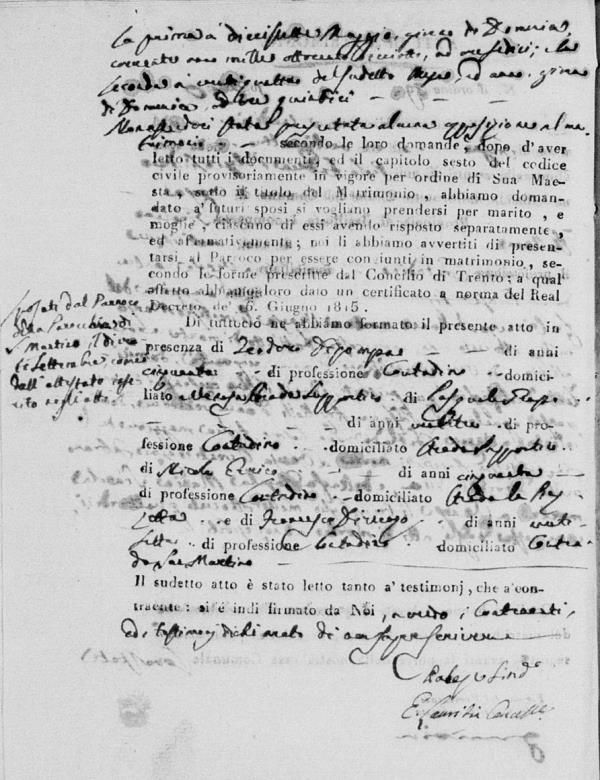 La prima a' diecisette Maggio, giorno di Domenica,
corrente anno mille ottocento diciotto, ad ore sedici; e la
seconda a' ventiquattro del sudetto Mese, ed anno, giorno
di Domenica, ad ore quindici
Non essendoci stata presentata alcuna opposizione al ma-
trimonio secondo le loro domande, dopo d'aver
letto tutti i documenti, ed il capitolo sesto del codice
civile provisoriamente in vigore per ordine di Sua Mae-
stà, sotto il titolo del Matrimonio, abbiamo doman-
dato a' futuri sposi si vogliano prendersi per marito, e
moglie, ciascuno di essi avendo risposto separatamente,
ed affermativamente; noi li abbiamo avvertiti di presen-
tarsi al Parroco per essere congiunti in matrimonio, se-
condo le forme prescritte dal Concilio di Trento; a qual
effetto abbiamo loro dato un certificato a norma del Real
Decreto de' 16. Giugno 1815.
Sposati dal Parroco
della Parrocchia di
S. Martino, il dì
Settembre, come
dall'attestato inse-
rito negli atti.
Di tuttociò ne abbiamo formato il presente atto in
presenza di Teodoro di anni
cinquanta di professione Contadino domici-
liato Supportico di Pasquale
di anni ventitre di pro-
fessione Contadino domiciliato Supportico
di Nicola Enrico di anni cinquanta
di professione Contadino domiciliato
e di Francesco di anni venti
sette di professione Contadino domiciliato Contra-
da San Martino
Il sudetto atto è stato letto tanto a' testimonj, che a' con-
traente: si è indi firmato da Noi, avendo i Contraenti,
ed i testimonj dichiarato di non saper scrivere
Sind°